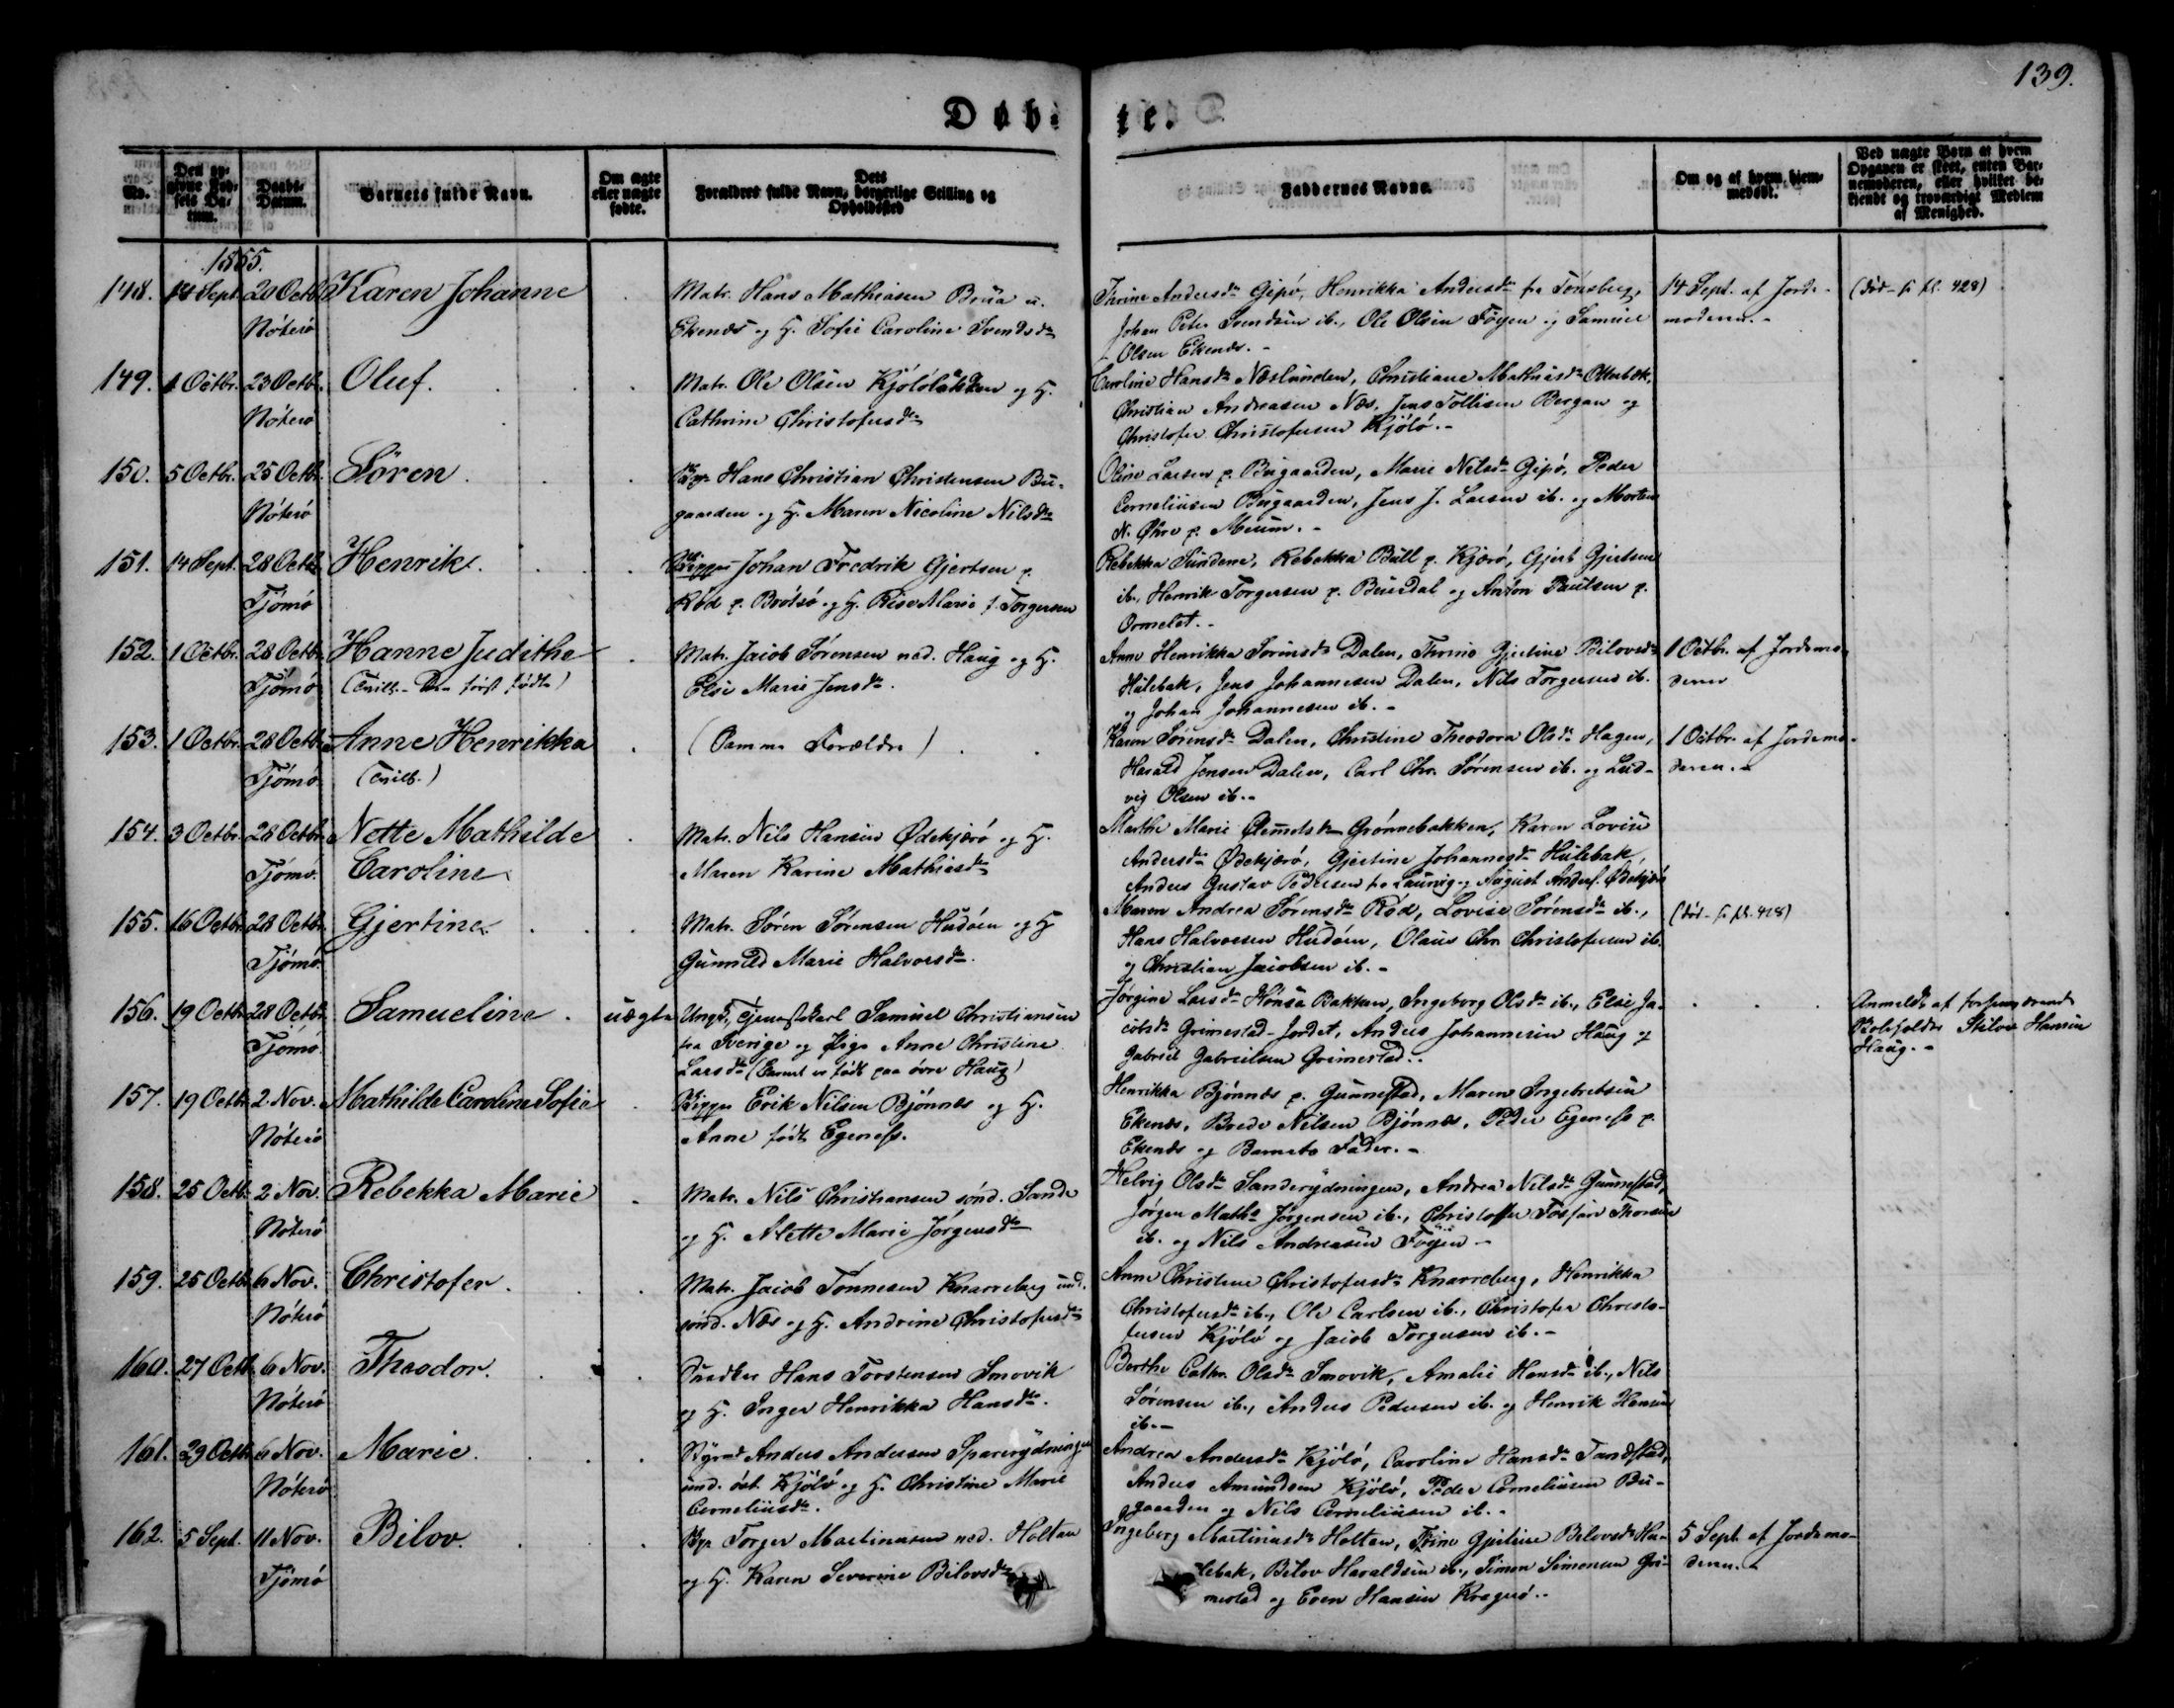 139.
Døbte.
No.
Den opgivne Fødsels Datum.
Daabs-Datum.
Barnets fulde Navn.
Om ægte eller uægte fødte.
Dets Forældres fulde Navn, borgerlige Stilling og Opholdssted
Faddernes Navne.
Om og af hvem hjemmedøbt.
Ved uægte Børn at hvem Opgaven er skeet, enten Barnemoderen, eller hvilket bekjendt og troværdigt Medlem af Menighed.
1855.
148. 14 Sept. 20 Octb. Karen Johanne
Nøterø
Matr. Hans Mathiasen Brua u.
Ekenæs og H. Sofie Caroline Svendsdr
Thrine Andersdr Gipø, Henrikka Andersdr fra Tønsberg,
Johan Peter Svendsen ib., Ole Olsen Føyen og Samuel
Olsen Ekenæs.-
14 Sept. af Jorde-
moderen.-
(død - fl. 428)
149. 1 Octbr. 23 Octb. Oluf.
Nøterø
Matr. Ole Olsen Kjøløbakken og H.
Cathrine Christofersdr
Caroline Hansdr Næslunden, Christiane Mathisdr Otterbæk,
Christian Andreasen Næs, Jens Tollisen Bergan og
Christofer Christofersen Kjølø.-
150. 5 Octbr. 25 Octb. Søren.
Nøterø
Hans Christian Christensen Bu-
gaarden og H. Maren Nicoline Nilsdr
Oline Larsen p. Bugaarden, Marie Nilsdr Gipø, Peder
Corneliusen Bugaarden, Jens J. Larsen ib. og Morten
N. Øhre p. Meum.-
151. 14 Sept. 28 Octb. Henrik.
Tjömö
Skipper Johan Fredrik Gjertsen p.
Rød p. Brøtsø og H. Rise Marie f. Torgersen
Rebekka Sundene, Rebekka Bull p. Kjærø, Gjert Gjertsen
ib., Henrik Torgersen p. Buerdal og Anton Paulsen p.
Ormelet.-
152. 1 Octbr. 28 Octb. Hanne Judithe
Tjömö (Tvill. - Den først fødte)
Matr. Jacob Sørensen ned. Haug og H.
Else Marie Jensdr.
Anne Henrikka Sørensdr Dalen, Thrine Gjertine Bilovsdr
Hulebak, Jens Johannesen Dalen, Nils Torgersen ib.
og Johan Johannesen ib.-
1 Octbr. af Jordemo-
deren
153. 1 Octbr. 28 Octb. Anne Henrikka
Tjömö (Tvill.)
(Samme Forældre)
Karen Sørensdr Dalen, Christine Theodora Olsdr Hagen,
Harald Jensen Dalen, Carl Chr. Sørensen ib. og Lud-
vig Olsen ib.-
1 Octbr. af Jordemo-
deren.-
154. 3 Octbr. 28 Octbr. Nette Mathilde
Tjömö. Caroline
Matr. Nils Hansen Ødekjærø og H.
Maren Karine Mathisdr
Marthe Marie Grønnebakken, Karen Lovise
Andersdr Ødekjærø, Gjertine Johannesdr Hulebak
Anders Gustav Pedersen fra Laurvig og August Anders. Ødekjærø
155. 16 Octbr. 28 Octb. Gjertine.
Tjömö.
Matr. Søren Sørensen Hudøen og H
Gunnild Marie Halvorsdr.
Maren Andrea Sørensdr Rød, Lovise Sørensdr ib.,
Hans Halvorsen Hudøen, Olaus Chr. Christofersen ib.
og Christian Jacobsen ib.-
(død - fl. 428)
156. 19 Octbr. 28 Octb. Samueline. uægte
Tjömö
Ungk., Tjenestekarl Samuel Christiansen
fra Sverige og Pige Anne Christine
Larsdr (Barnet er født paa øvre Haug)
Jørgine Larsdr Hønsa Bakken, Ingeborg Olsdr ib., Else Ja-
cobsdr Grimestad-Jordet, Anders Johannesen Haug og
Gabriel Gabrielsen Grimestad.-
Anmeldt af
Stilov Hansen
Haug.-
157. 19 Octb. 2 Nov. Mathilde Caroline Sofie
Nøterø
Skipper Erik Nilsen Bjønnes og H.
Anne født Egeness.
Henrikka Bjønnes p. Gunnestad, Maren Ingebretsen
Ekenæs, Brede Nilsen Bjønnes, Peder Egeness p.
Ekenæs og Barnets Fader.-
158. 25 Octb. 2 Nov. Rebekka Marie
Nøterø
Matr. Nils Christiansen sønd. Sande
og H. Alette Marie Jørgensdr
Helvig Olsdr Sanderydningen, Andrea Nilsdr Gunnestad,
Jørgen Maths Jørgensen ib., Christoffer Thorsen
ib. og Nils Andreasen Föyen -
159. 25 Octb. 6 Nov. Christofer.
Nøterø
Matr. Jacob Tönnesen Knarreberg und.
sönd. Næs og H. Andrine Christofersdr
Anne Christine Christofersdr Knarreberg, Henrikka
Christofersdr ib., Ole Carlsen ib., Christofer Christo-
fersen Kjølø og Jacob Torgersen ib.-
160. 27 Octb. 6 Nov. Theodor.
Nøterø
Hans Torstensen Smovik
og H. Inger Henrikka Hansdr.
Berthe Cathr. Olsdr Smovik, Amalie Hansdr ib., Nils
Sørensen ib., Anders Pedersen ib. og Henrik Hansen
ib.-
161. 29 Octb. 6 Nov. Marie.
Nøterø
Anders Andersen Sparerydningen
und. øst. Kjølø og H. Christine Marie
Corneliusdr.
Andrea Andersdr Kjølø, Caroline Hansdr Tandstad,
Anders Amundsen Kjølø, Peder Corneliusen Bu-
gaarden og Nils Corneliusen ib.-
162. 5 Sept. 11 Nov. Bilov.
Tjömö
Torger Martinusen ned. Holtan
og H. Karen Severine Bilovsdr
Ingeborg Martinusdr Holtan, Trine Gjertine Bilovsdr Hu-
lebak, Bilov Haraldsen ib., Simon Simonsen Gri-
mestad og Even Hansen Kragerö.-
5 Sept. af Jordemo-
deren.-